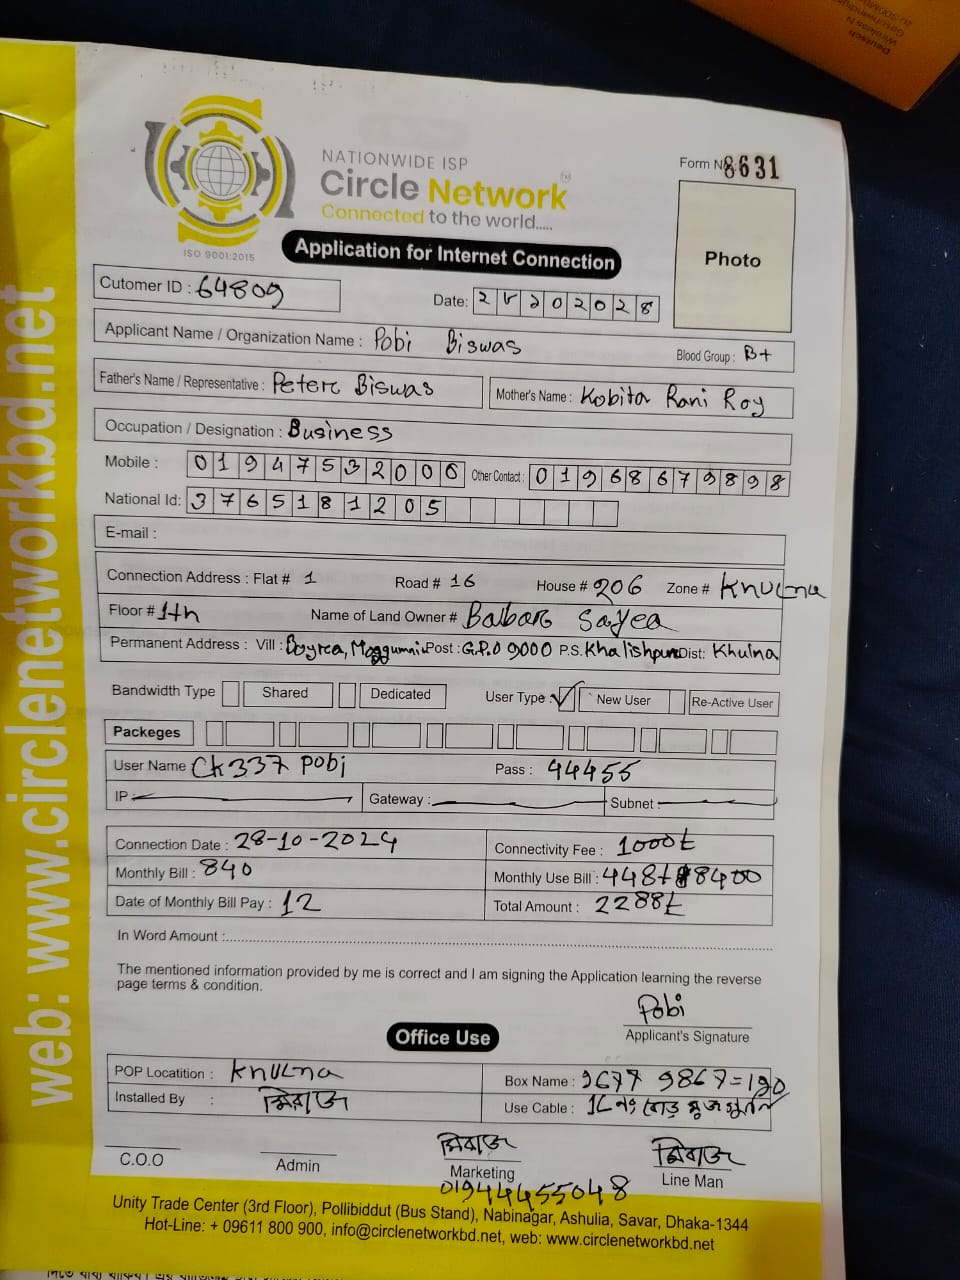 NATIONWIDE ISP
Circle Network
Connected to the world.....
ISO 9001:2015
Form No 8631
Application for Internet Connection
Photo
Cutomer ID : 64809
Date:
Applicant Name / Organization Name : Pobi Biswas
Blood Group : B+
Father's Name / Representative : Peter Biswas
Mother's Name : Kobita Rani Roy
Occupation / Designation : Business
Mobile : 01947532006 Other Contact : 01968679898
National Id: 3765181205
E-mail :
Connection Address : Flat # 1 Road # 16 House # 206 Zone # Khulna
Floor # 1th Name of Land Owner #
Permanent Address : Vill : Boyra, Post : G.P.O 9000 P.S. Khalishpur Dist: Khulna
Bandwidth Type Shared Dedicated User Type : ✓ New User Re-Active User
Packeges
User Name Ck337 pobi Pass : 44455
IP : Gateway : Subnet :
Connection Date : 28-10-2024 Connectivity Fee : 1000৳
Monthly Bill : 840 Monthly Use Bill : 448+
Date of Monthly Bill Pay : 12 Total Amount : 2288৳
In Word Amount :
The mentioned information provided by me is correct and I am signing the Application learning the reverse
page terms & condition.
Pobi
Applicant's Signature
Office Use
POP Locatition : Khulna Box Name :
Installed By : মিরাজ Use Cable :
মিরাজ মিরাজ
C.O.O Admin Marketing Line Man
01944455048
Unity Trade Center (3rd Floor), Pollibiddut (Bus Stand), Nabinagar, Ashulia, Savar, Dhaka-1344
Hot-Line: + 09611 800 900, info@circlenetworkbd.net, web: www.circlenetworkbd.net
web: www.circlenetworkbd.net
Deutsch